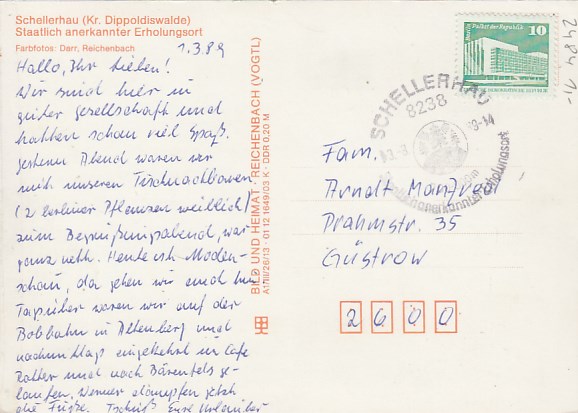 Schellerhau (Kr. Dippoldiswalde)
Staatlich anerkannter Erholungsort
Farbfotos: Darr, Reichenbach
1.3.89
Hallo, Ihr Lieben!
Wir sind hier in
guter Gesellschaft und
hatten schon viel Spaß.
gestern Abend waren wir
mit unseren Tischnachbarn
(2 Berliner Pflanzen weiblich)
zum Begrüßungsabend, war
ganz nett. Heute ist Moden-
schau, da gehen wir auch hin
Tagsüber waren wir auf der
Bobbahn in Altenberg und
nachmittags eingekehrt in Cafe
und nach Bärenfels ge-
laufen. Werner dampfen jetzt
die Füße. Tschüß Eure Urlauber
BILD UND HEIMAT · REICHENBACH (VOGTL)
A1/III/26/13 · 01 12 1649/03 K · DDR 0,20 M
Berlin, Palast der Republik
10
2484 1,-
SCHELLERHAU
8238
Staatlich anerkannter Erholungsort
Fam.
Arndt Manfred
Prahmstr. 35
Güstrow
2600